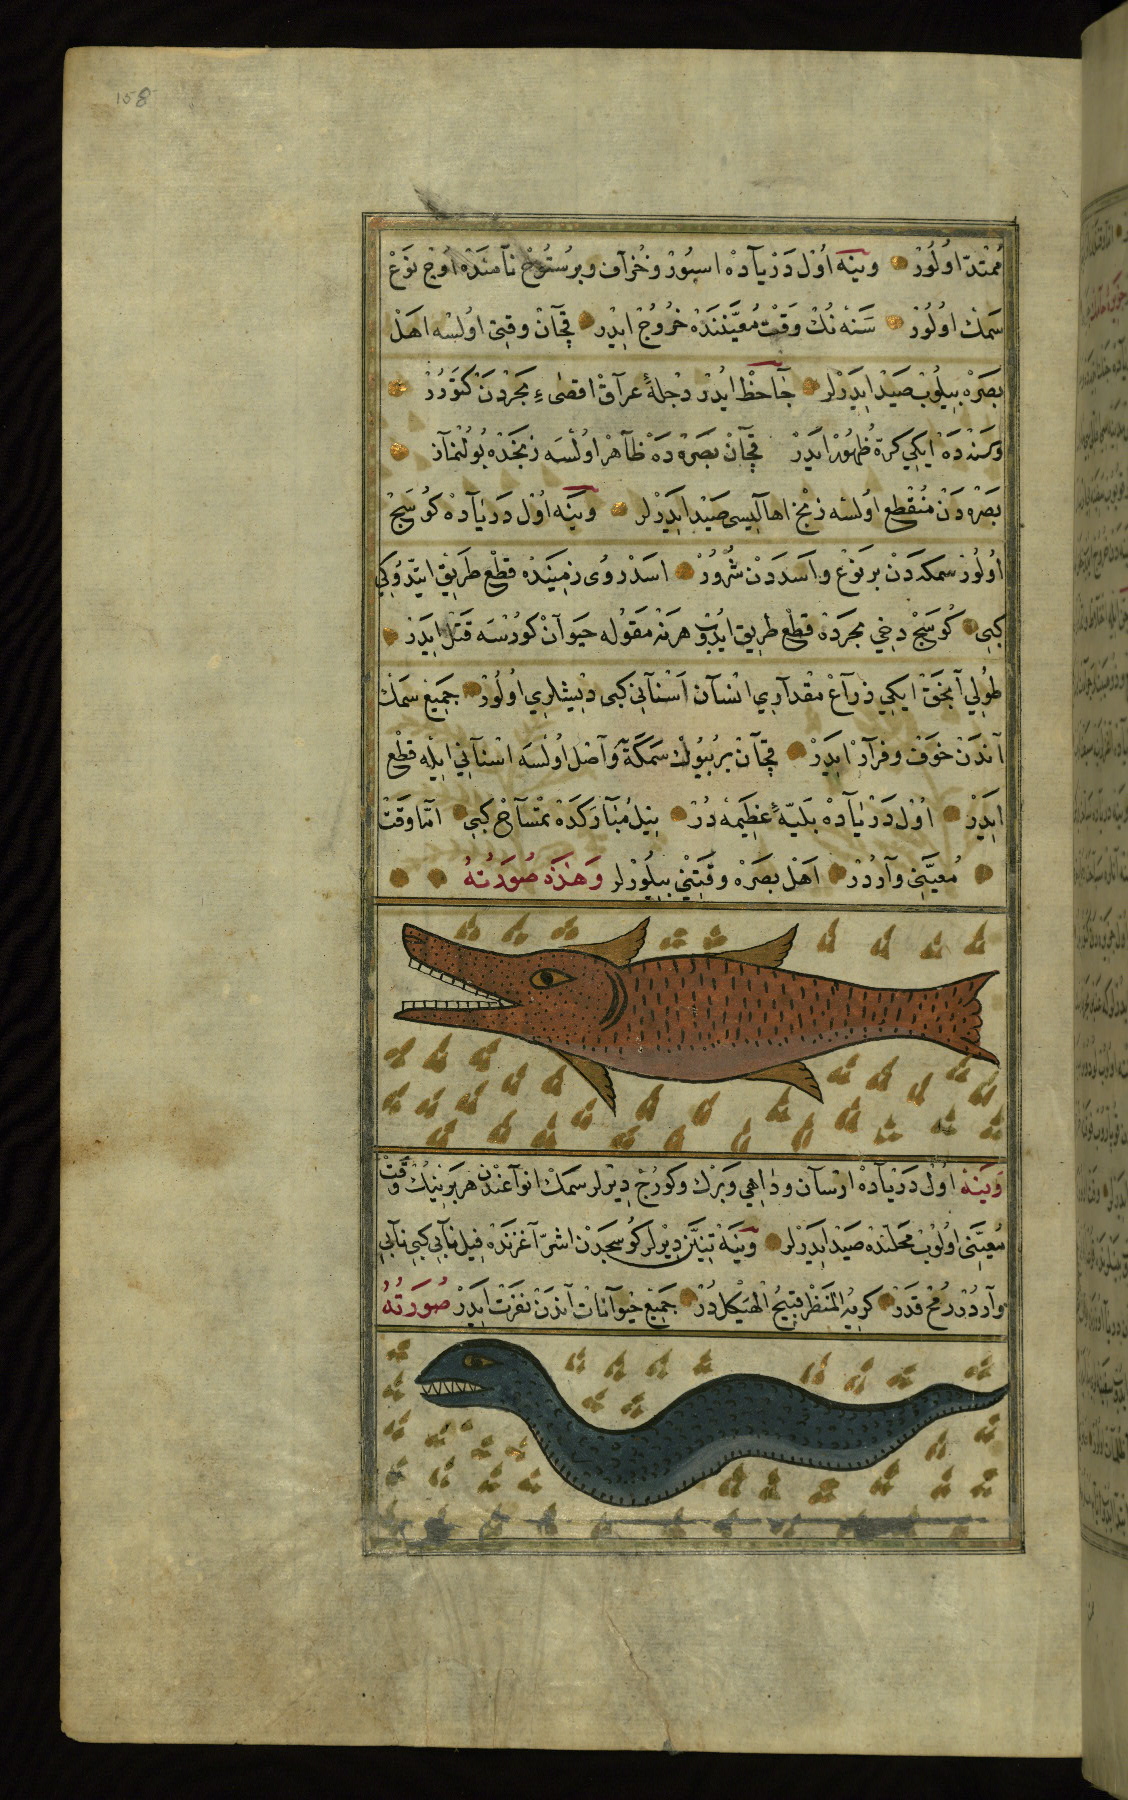 158
ممتدّ اولور وينه اول درياده اسبور وخراف وبرستوح نامنده اوج نوع
سمك اولور سنه نك وقت معيّننده خروج ايدر قچان وقتى اولسه اهل
بصره بيلوب صيد ايدرلر جاحظ ايدر دجلهٔ عراق اقصىء بحردن كتورر
وسنه ده ايكي كرة ظهور ايدر قچان بصره ده ظاهر اولسه زنجده بولنماز
بصره دن منقطع اولسه زنج اهاليسى صيد ايدرلر وينه اول درياده كوسج
اولور سمكه دن بر نوع واسددن شرور اسد روى زمينده قطع طريق ايتدوكي
كبى كوسج دخي بحرده قطع طريق ايدوب هر نه مقوله حيوان كورسه قتل ايدر
طولي آنجق ايكي ذراع مقداري انسان اسناني كبى ديشلري اولور جميع سمك
آندن خوف وفرار ايدر قچان بر بيوك سمكة واصل اولسه اسناني ايله قطع
ايدر اول درياده بليّهٔ عظيمه در نيل مباركده تمساح كبى امّا وقت
معيّنى واردر اهل بصره وقتنى بيلورلر وهذه صورته
وينه اول درياده ارسان وداهي وبرك وكورج ديرلر سمك انواعندن هر برينك وقت
معيّنى اولوب محلنده صيد ايدرلر وينه تنّين ديرلر كوسجدن اشرّ آغزنده فيل نابي كبى نابى
واردر رمح قدر كريه المنظر قبيح الهيكل در جميع حيوانات آندن نفرت ايدر صورته